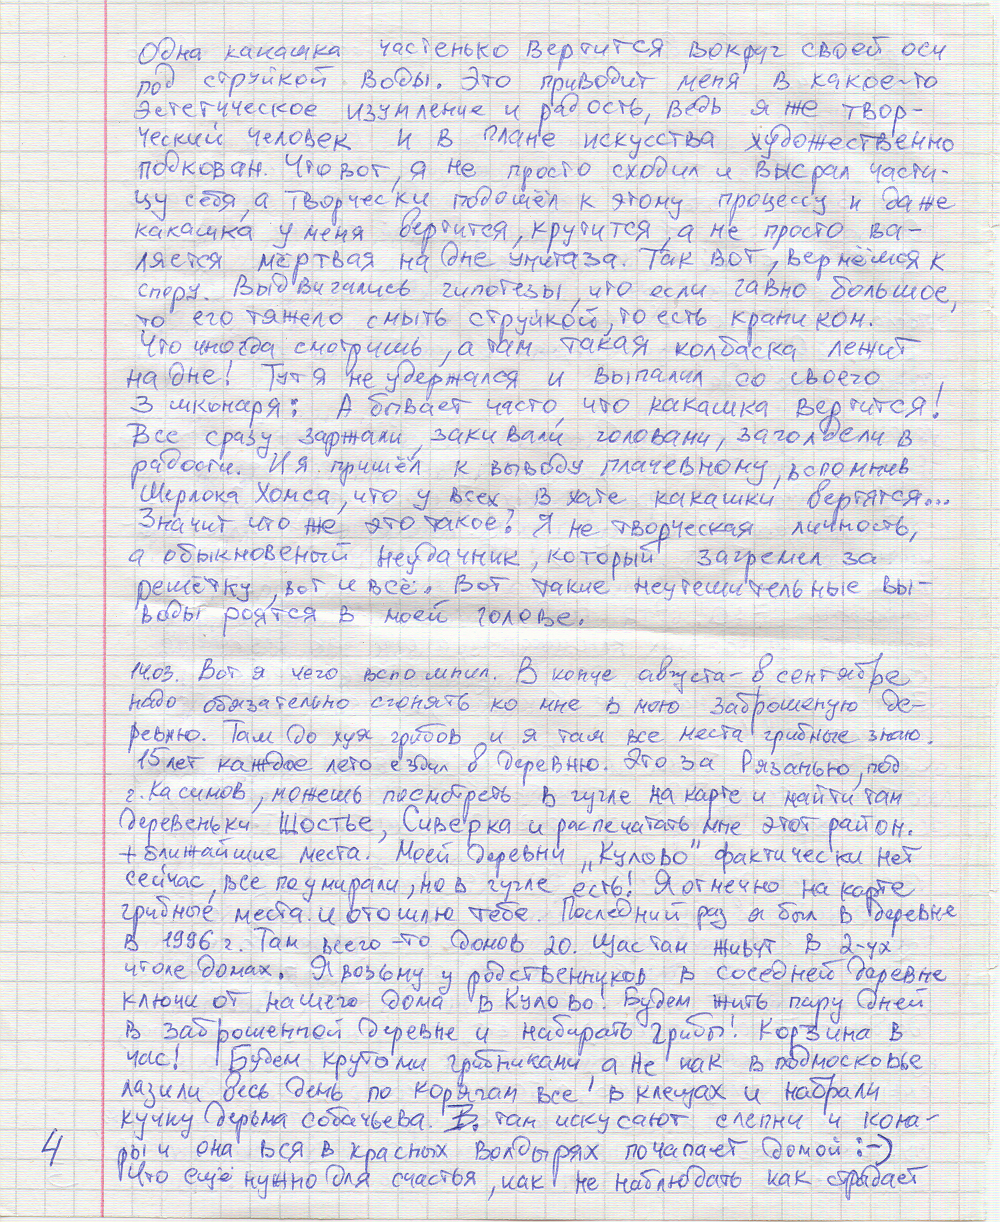 Одна какашка частенько вертится вокруг своей оси
под струйкой воды. Это приводит меня в какое-то
эстетическое изумление и радость, ведь я же твор-
ческий человек и в плане искусства художественно
подкован. Что вот, я не просто сходил и высрал части-
цу себя, а творчески подошёл к этому процессу и даже
какашка у меня вертится, крутится, а не просто ва-
ляется мёртвая на дне унитаза. Так вот, вернёмся к
спору. Выдвигались гипотезы, что если гавно большое,
то его тяжело смыть струйкой, то есть краником.
Что иногда смотришь, а там такая колбаска лежит
на дне! Тут я не удержался и выпалил со своего
3 шконаря: А бывает часто, что какашка вертится!
Все сразу заржали, закивали головами, загалдели в
радости. И я пришёл к выводу плачевному, вспомнив
Шерлока Хомса, что у всех в хате какашки вертятся...
Значит что же это такое? Я не творческая личность,
а обыкновеный неудачник, который загремел за
решётку, вот и всё. Вот такие неутешительные вы-
воды роятся в моей голове.
14.03. Вот я чего вспомнил. В конце августа - в сентябре
надо обязательно сгонять ко мне в мою заброшеную де-
ревню. Там до хуя грибов и я там все места грибные знаю.
15 лет каждое лето ездил в деревню. Это за Рязанью, под
г. Касимов, можешь посмотреть в гугле на карте и найти там
деревеньки Щостье, Сиверка и распечатать мне этот район.
+ ближайшие места. Моей деревни „Кулово" фактически нет
сейчас, все поумирали, но в гугле есть! Я отмечю на карте
грибные места и отошлю тебе. Последний раз я был в деревне
в 1996 г. Там всего-то домов 20. Щас там живут в 2-ух
чтоле домах. Я возьму у родственников в соседней деревне
ключи от нашего дома в Кулово! Будем жить пару дней
в заброшенной деревне и набирать грибы! Корзина в
час! Будем крутоми грибниками, а не как в подмосковье
лазили весь день по корягам все в клещах и набрали
кучку дерьма собачьева. В. там искусают слепни и кома-
ры и она вся в красных волдырях почапает домой :-)
Что ещё нужно для счастья, как не наблюдать как страдает
4